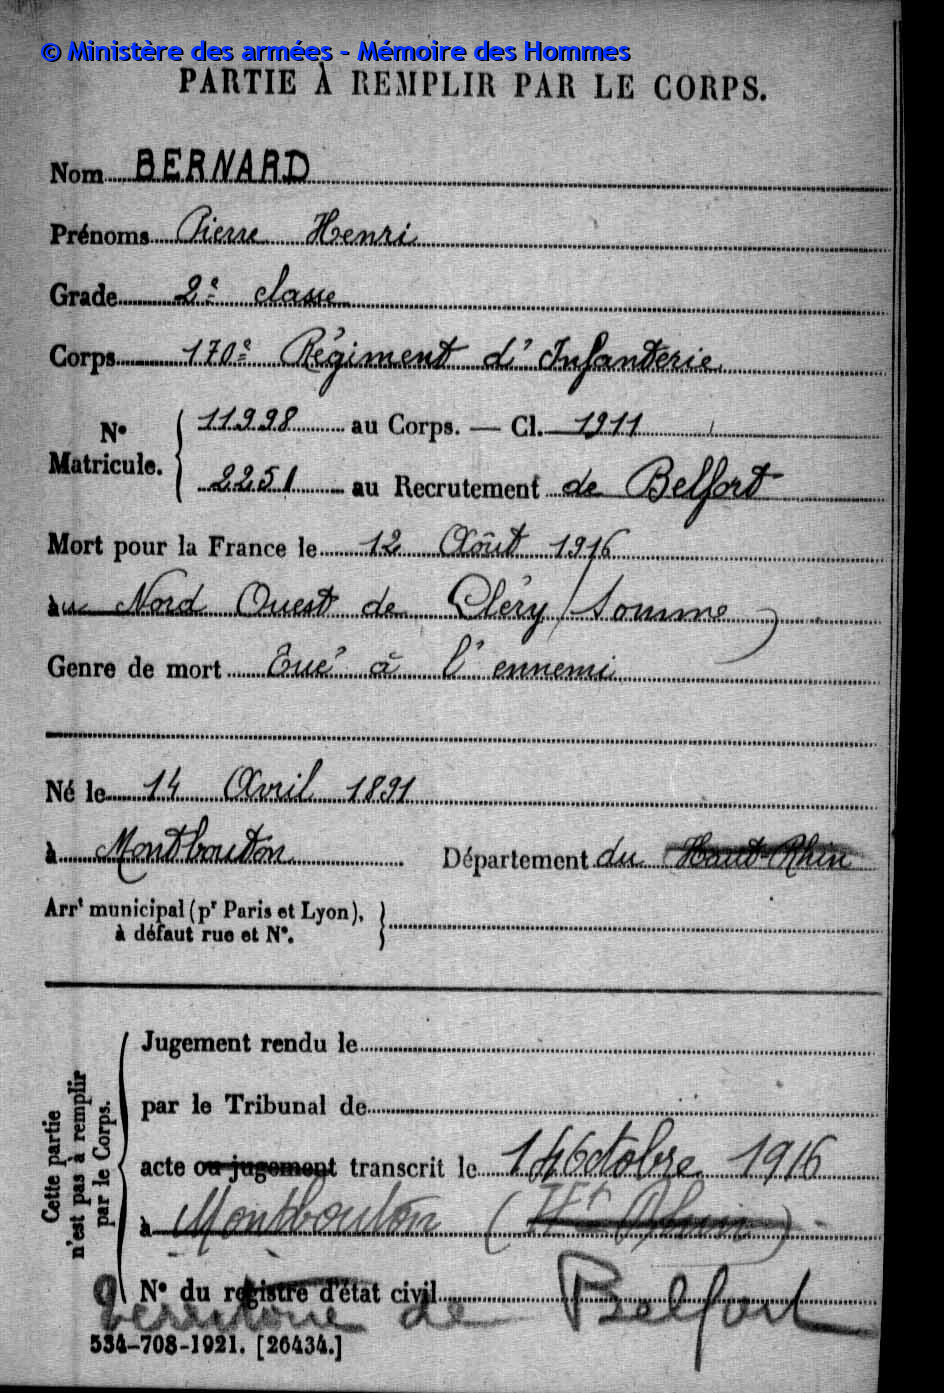 © Ministère des armées - Mémoire des Hommes
PARTIE À REMPLIR PAR LE CORPS.
Nom BERNARD
Prénoms Pierre Henri
Grade 2e classe
Corps 170e Régiment d'Infanterie
N° Matricule. { 11998 au Corps. — Cl. 1911
2251 au Recrutement de Belfort
Mort pour la France le 12 Août 1916
au Nord Ouest de Cléry (Somme)
Genre de mort Tué à l'ennemi
Né le 14 Avril 1891
à Montbouton Département du Haut-Rhin
Arrt municipal (pr Paris et Lyon), à défaut rue et N°. }
Cette partie n'est pas à remplir par le Corps. {
Jugement rendu le
par le Tribunal de
acte ou jugement transcrit le 14 Octobre 1916
à Montbouton (Ht Rhin)
N° du registre d'état civil
Territoire de Belfort
534-708-1921. [26434.]